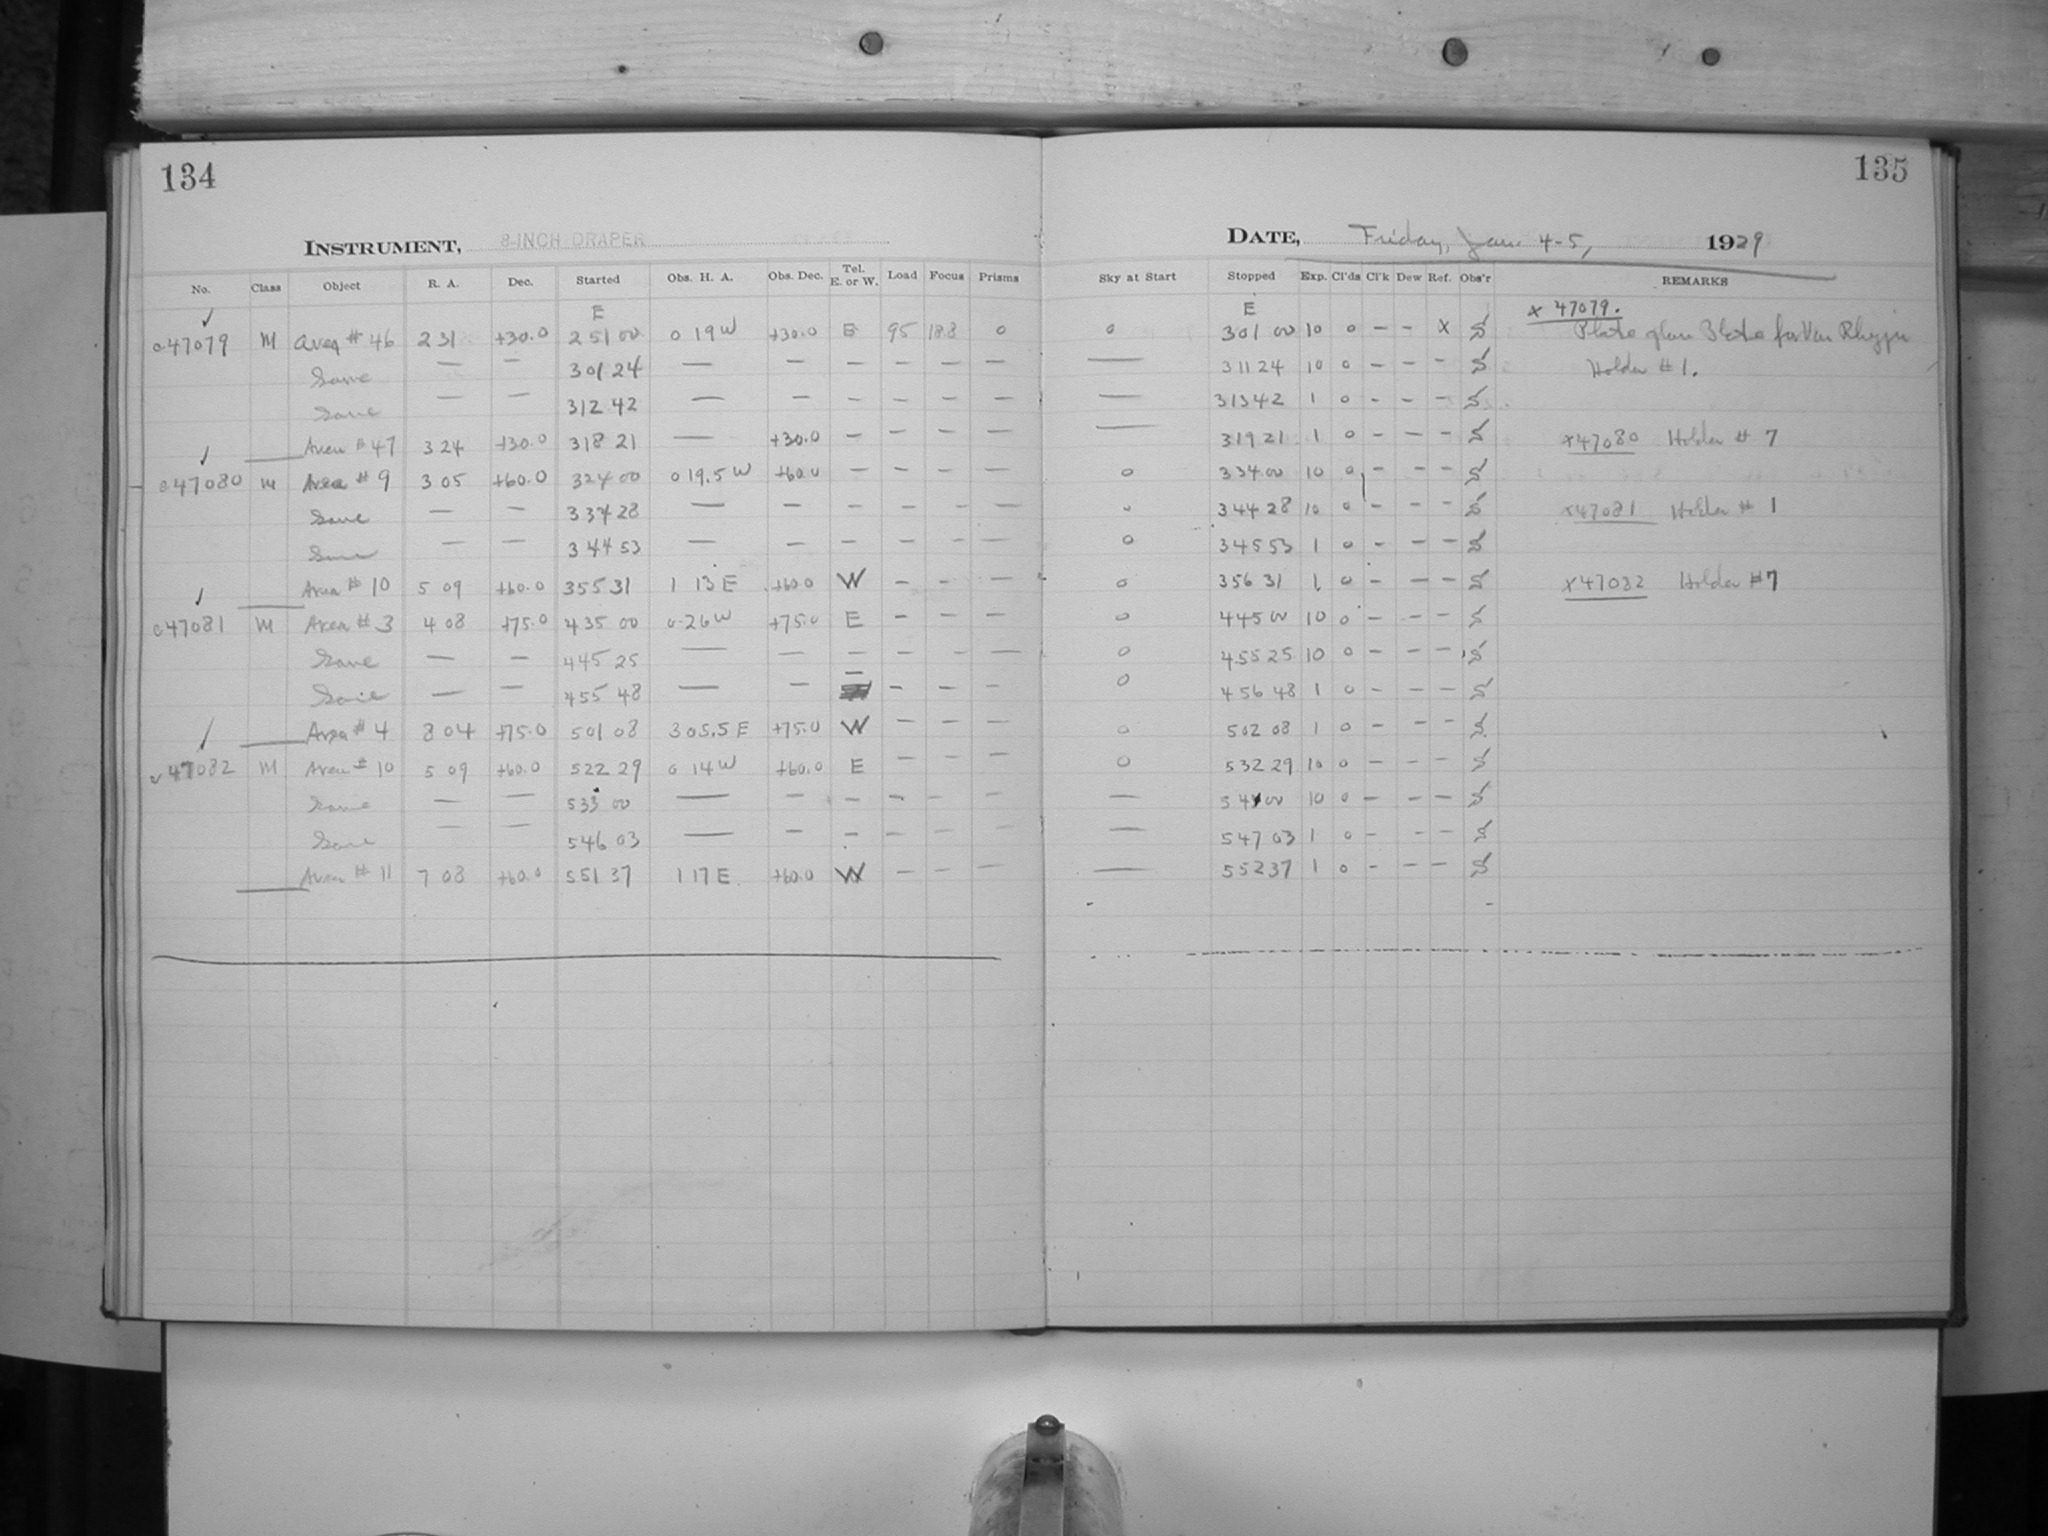 134
INSTRUMENT, 8-INCH DRAPER
No. Class Object R. A. Dec. Started Obs. H. A. Obs. Dec. Tel. E. or W. Load Focus Prisms
E
47079 M Area # 46 2 31 +30.0 2 51 00 0 19 W +30.0 E 95 18.8 0
Same — — 3 01 24 — — — — — —
Same — — 3 12 42 — — — — — —
Area # 47 3 24 +30.0 3 18 21 — +30.0 — — — —
47080 M Area # 9 3 05 +60.0 3 24 00 0 19.5 W +60.0 — — — —
Same — — 3 34 28 — — — — — —
Same — — 3 44 53 — — — — — —
Area # 10 5 09 +60.0 3 55 31 1 13 E +60.0 W — — —
47081 M Area # 3 4 08 +75.0 4 35 00 0 26 W +75.0 E — — —
Same — — 4 45 25 — — — — — —
Same — — 4 55 48 — — — — — —
Area # 4 8 04 +75.0 5 01 08 3 05.5 E +75.0 W — — —
47082 M Area # 10 5 09 +60.0 5 22 29 0 14 W +60.0 E — — —
Same — — 5 33 00 — — — — — —
Same — — 5 46 03 — — — — — —
Area # 11 7 08 +60.0 5 51 37 1 17 E +60.0 W — — —
135
DATE, Friday, Jan. 4-5, 1929
Sky at Start Stopped Exp. Cl'ds Cl'k Dew Ref. Obs'r REMARKS
E x 47079.
0 3 01 00 10 0 — — X S Plate glass Plate for Van Rhyjn
— 3 11 24 10 0 — — — S Holder # 1.
— 3 13 42 1 0 - — — S
— 3 19 21 1 0 - — — S x47080 Holder # 7
0 3 34 00 10 0 - — — S
0 3 44 28 10 0 - — — S x47081 Holder # 1
0 3 45 53 1 0 - — — S
0 3 56 31 1 0 - — — S x47082 Holder #7
0 4 45 00 10 0 - — — S
0 4 55 25 10 0 - — — S
0 4 56 48 1 0 - — — S
0 5 02 08 1 0 - — — S
0 5 32 29 10 0 - — — S
— 10 0 — — — S
— 5 47 03 1 0 - — — S
— 5 52 37 1 0 - — — S